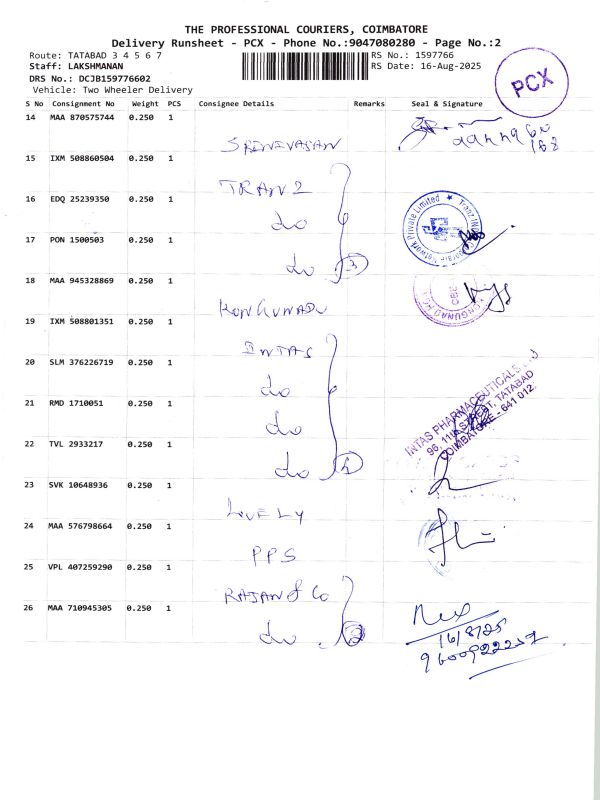 THE PROFESSIONAL COURIERS, COIMBATORE
Delivery Runsheet - PCX - Phone No.:9047080280 - Page No.:2
Route: TATABAD 3 4 5 6 7
RS No.: 1597766
Staff: LAKSHMANAN
RS Date: 16-Aug-2025
DRS No.: DCJB159776602
Vehicle: Two Wheeler Delivery
PCX
S No Consignment No Weight PCS Consignee Details Remarks Seal & Signature
14 MAA 870575744 0.250 1
SRINIVASAN
15 IXM 508860504 0.250 1
TRANZ
16 EDQ 25239350 0.250 1
do
17 PON 1500503 0.250 1
do 3
18 MAA 945328869 0.250 1
KONGUNADU
19 IXM 508801351 0.250 1
INTAS
20 SLM 376226719 0.250 1
do
21 RMD 1710051 0.250 1
do
22 TVL 2933217 0.250 1
do 4
INTAS PHARMACEUTICALS
96, 11th STREET, TATABAD
COIMBATORE - 641 012.
23 SVK 10648936 0.250 1
LOVELY
24 MAA 576798664 0.250 1
PPS
25 VPL 407259290 0.250 1
RAJAN & Co
26 MAA 710945305 0.250 1
do 2
16/8/25